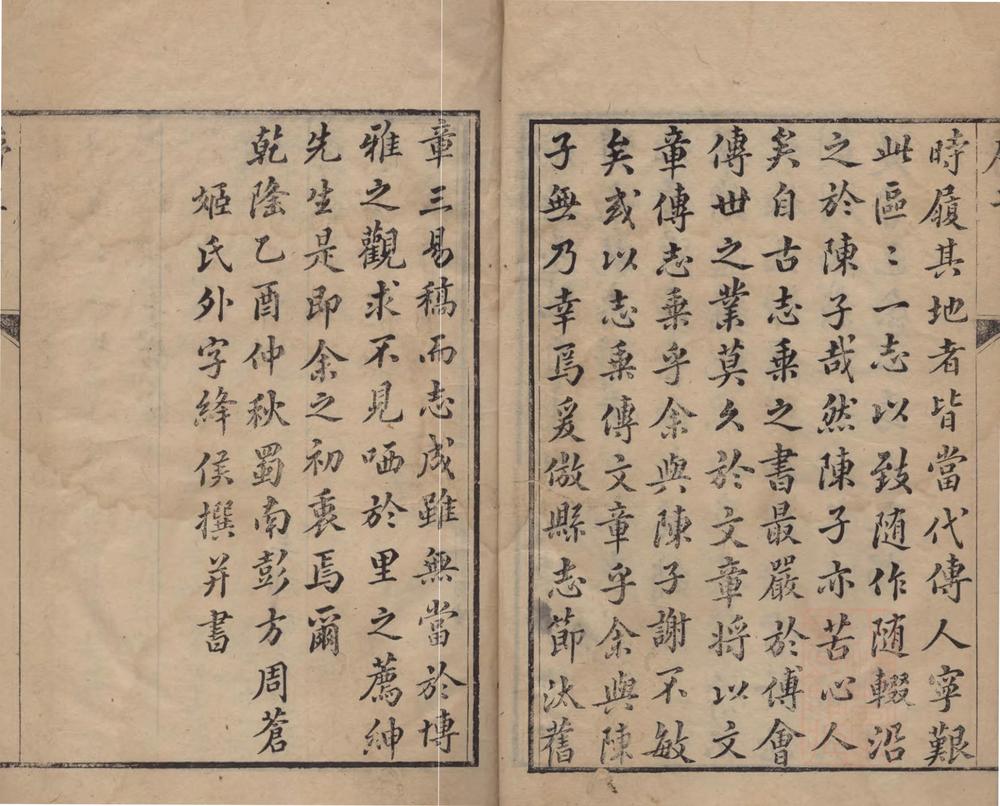 時履其地者皆當代傳人寧艱
此區〻一志以致随作随輟沿
之於陳子哉然陳子亦苦心人
矣自古志乘之書最嚴於傅會
傳世之業莫久於文章将以文
章傳志乗乎余與陳子謝不敏
矣或以志乗傳文章乎余與陳
子無乃幸焉爰倣縣志節汰舊
章三易稿而志成雖無當於博
雅之觀求不見哂於里之薦紳
先生是即余之初衷焉爾
乾隆乙酉仲秋蜀南彭方周蒼
姬氏外字絳侯撰并書